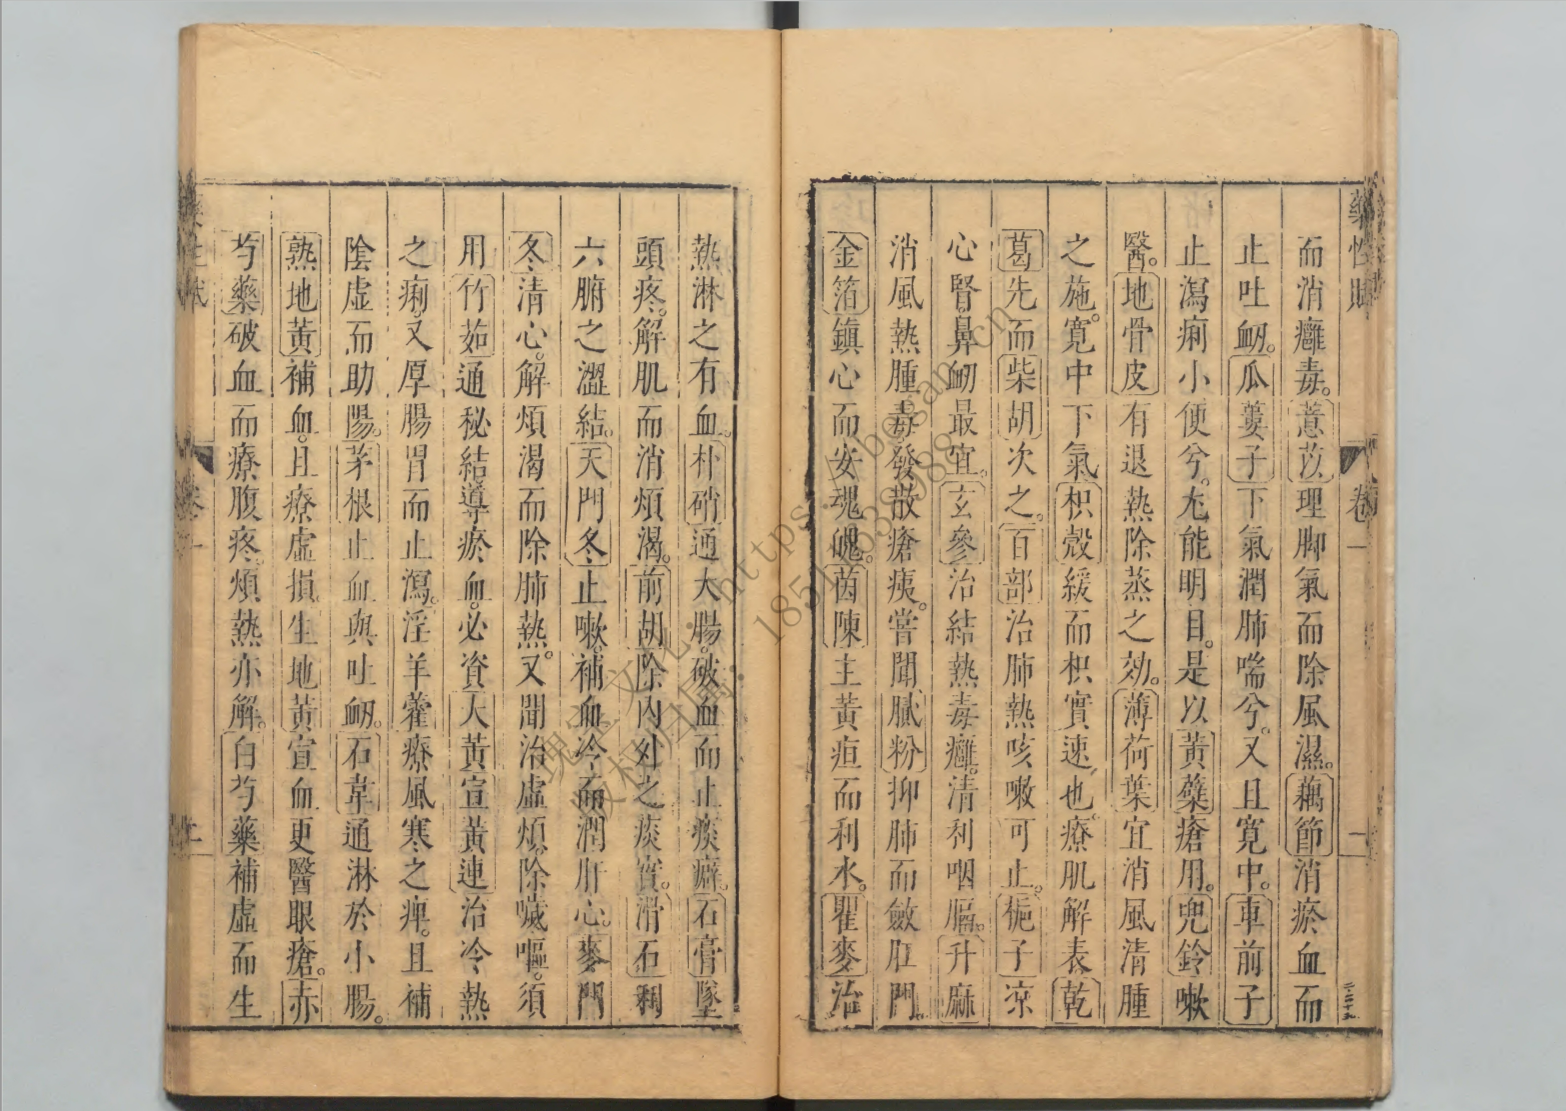 藥性賦
卷一
二
而消癰毒。薏苡理脚氣而除風濕。藕節消瘀血而
止吐衂。瓜蔞子下氣潤肺喘兮。又且寛中。車前子
止瀉痢小便兮。尤能明目。是以黃蘗瘡用。兜鈴嗽
醫。地骨皮有退熱除蒸之効。薄荷葉宜消風清腫
之施。寛中下氣枳殼緩而枳實速也。療肌解表乾
葛先而柴胡次之。百部治肺熱咳嗽可止。梔子凉
心腎。鼻衂最宜。玄參治結熱毒癰。清利咽膈。升麻
消風熱腫毒發散瘡痍。嘗聞膩粉抑肺而斂肛門。
金箔鎮心而安魂魄。茵陳主黃疸而利水。瞿麥治
熱淋之有血。朴硝通大腸。破血而止痰癖。石膏墜
頭疼。解肌而消煩渴。前胡除内外之痰實。滑石利
六腑之澀結。天門冬止嗽。補血冷而潤肝心。麥門
冬清心。解煩渴而除肺熱。又聞治虛煩。除噦嘔。須
用竹茹通秘結導瘀血。必資大黃宣黃連治冷熱
之痢。又厚腸胃而止瀉。淫羊藿療風寒之痺。且補
陰虛而助陽。茅根止血與吐衂。石韋通淋於小腸。
熟地黃補血。且療虛損。生地黃宣血更醫眼瘡。赤
芍藥破血而療腹疼。煩熱亦解。白芍藥補虛而生
卷一
二